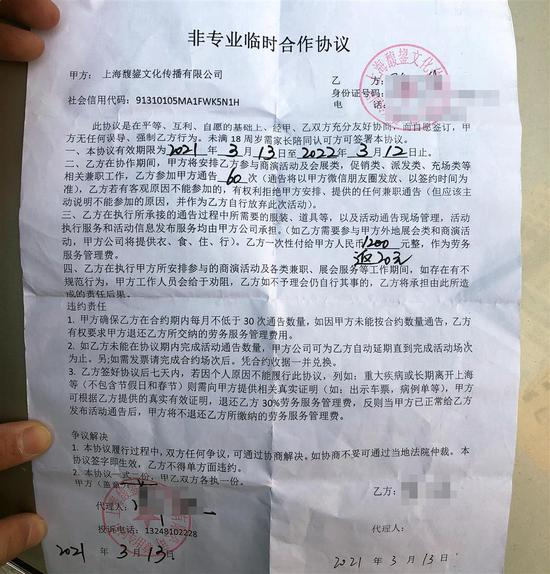 非专业临时合作协议
甲方：上海馥鋆文化传播有限公司
乙方：
社会信用代码：91310105MA1FWK5N1H
身份证号码：
电话
此协议是在平等、互利、自愿的基础上，经甲、乙双方充分友好协商，而自愿签订，甲
方无任何误导、强制乙方行为。未满18周岁需家长陪同认可方可签署本协议。
一、本协议有效期限为2021年3月13日至2022年3月12日止。
二、乙方在协作期间，甲方将安排乙方参与商演活动及会展类，促销类、派发类、充场类等
相关兼职工作，乙方参加甲方通告60次（通告将以甲方微信朋友圈发放、以签约时间为
准），乙方若有客观原因不能参加的，有权利拒绝甲方安排、提供的任何兼职通告（但应该主
动说明不能参加的原因，并作为乙方自行放弃此次活动）。
三、乙方在执行所承接的通告过程中所需要的服装、道具等，以及活动通告现场管理，活动
执行服务和活动信息发布服务均由甲方公司承担。（如乙方需要参与甲方外地展会类和商演活
动，甲方公司将提供衣、食、住、行）。乙方一次性付给甲方人民币1200元整，作为劳务
服务管理费。
返20元
四、乙方在执行甲方所安排参与的商演活动及各类兼职、展会服务等工作期间，如存在有不
规范行为，甲方工作人员会给于劝阻，乙方如不予理会仍自行其事的，乙方将承担由此所造
成的责任后果。
违约责任
1. 甲方确保乙方在合约期内每月不低于30次通告数量，如因甲方未能按合约数量通告，乙方
有权要求甲方退还乙方所交纳的劳务服务管理费用。
2. 如乙方未能在协议期内完成活动通告数量，甲方公司可为乙方自动延期直到完成活动场次
为止。另;如需发票请完成合约场次后。凭合约收据一并兑换。
3. 乙方签好协议后七天内，若因个人原因不能履行此协议，列如：重大疾病或长期离开上海
等（不包含节假日和春节）则需向甲方提供相关真实证明（如：出示车票，病例单等），甲方
可根据乙方提供的真实有效证明，退还乙方30%劳务服务管理费，反则当甲方已正常给乙方
发布活动通告后，甲方将不退还乙方所缴纳的劳务服务管理费。
争议解决
1. 本协议履行过程中，双方任何争议，可通过协商解决。如协商不妥可通过当地法院仲裁。本
协议签字即生效，乙方不得单方面违约。
2. 本协议一式一份，甲乙双方各执一份。
甲方（盖章
乙方：
代理人：
投诉电话：13248102228
代理人：
2021年3月13日
2021年3月13日